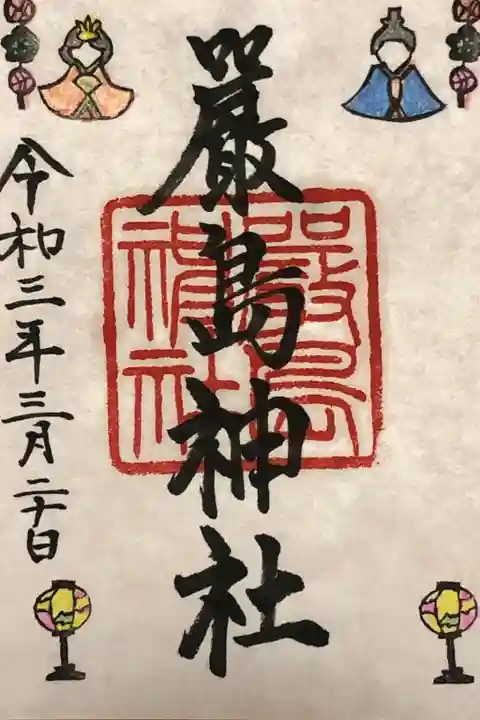 嚴島神社
令和三年三月二十日
嚴島
神社